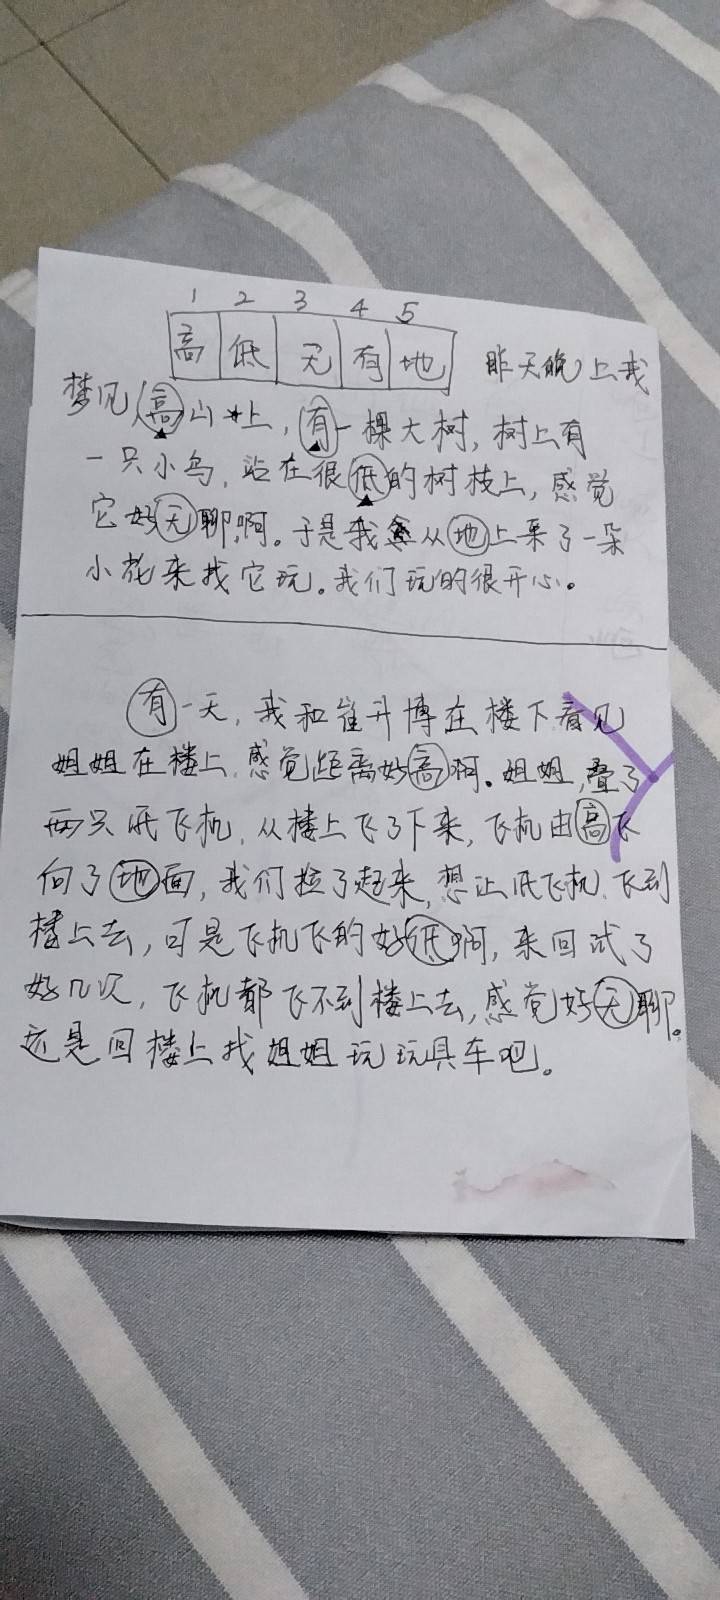 1 2 3 4 5
高 低 无 有 地 昨天晚上我
梦见高山上，有一棵大树，树上有
一只小鸟，站在很低的树枝上，感觉
它好无聊啊。于是我从地上采了一朵
小花来找它玩。我们玩的很开心。
有一天，我和崔升博在楼下看见
姐姐在楼上，感觉距离好高啊。姐姐，叠了
两只纸飞机，从楼上飞了下来，飞机由高飞
向了地面，我们捡了起来，想让纸飞机，飞到
楼上去，可是飞机飞的好低啊，来回试了
好几次，飞机都飞不到楼上去，感觉好无聊。
还是回楼上找姐姐玩玩具车吧。